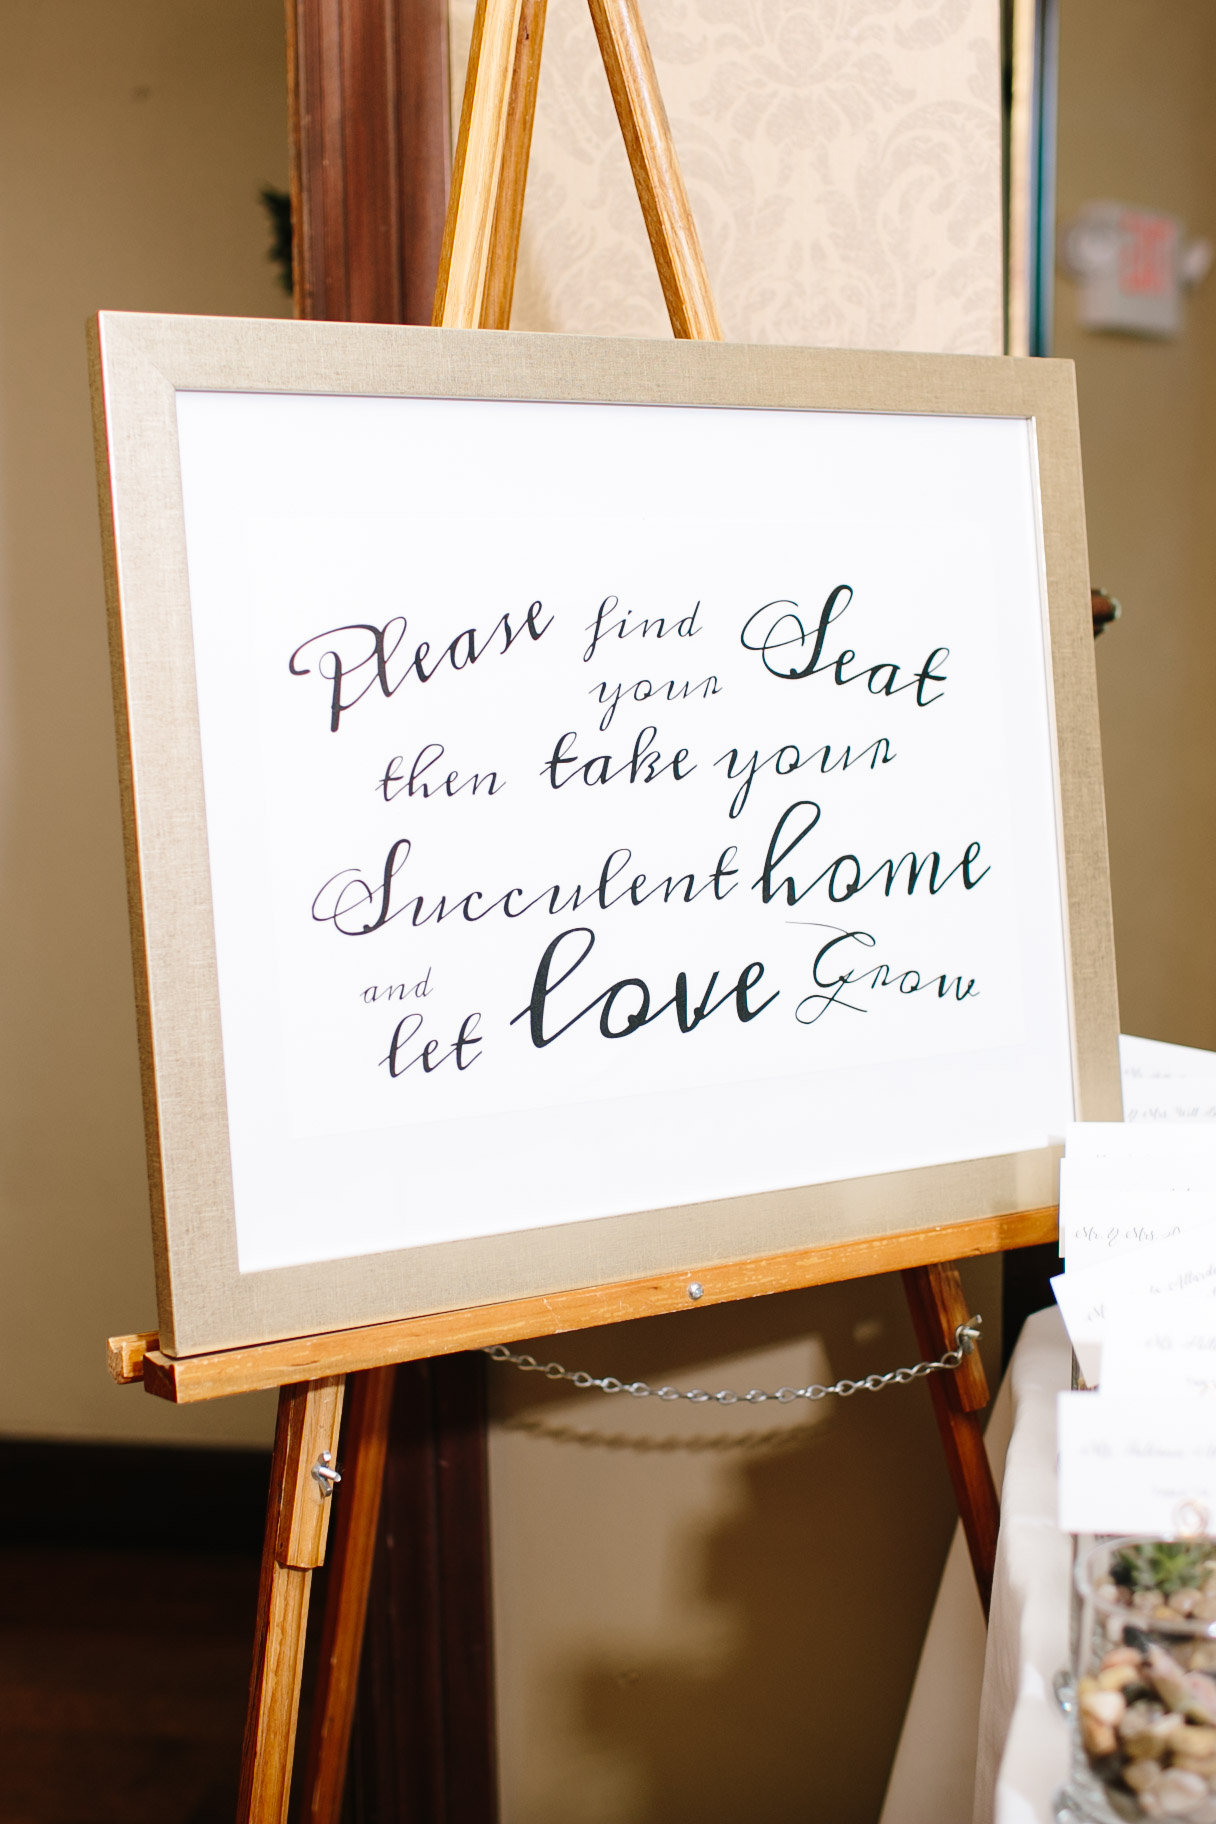 Please find your Seat
then take your
Succulent home
and let love Grow
EXIT
Mr. & Mrs.